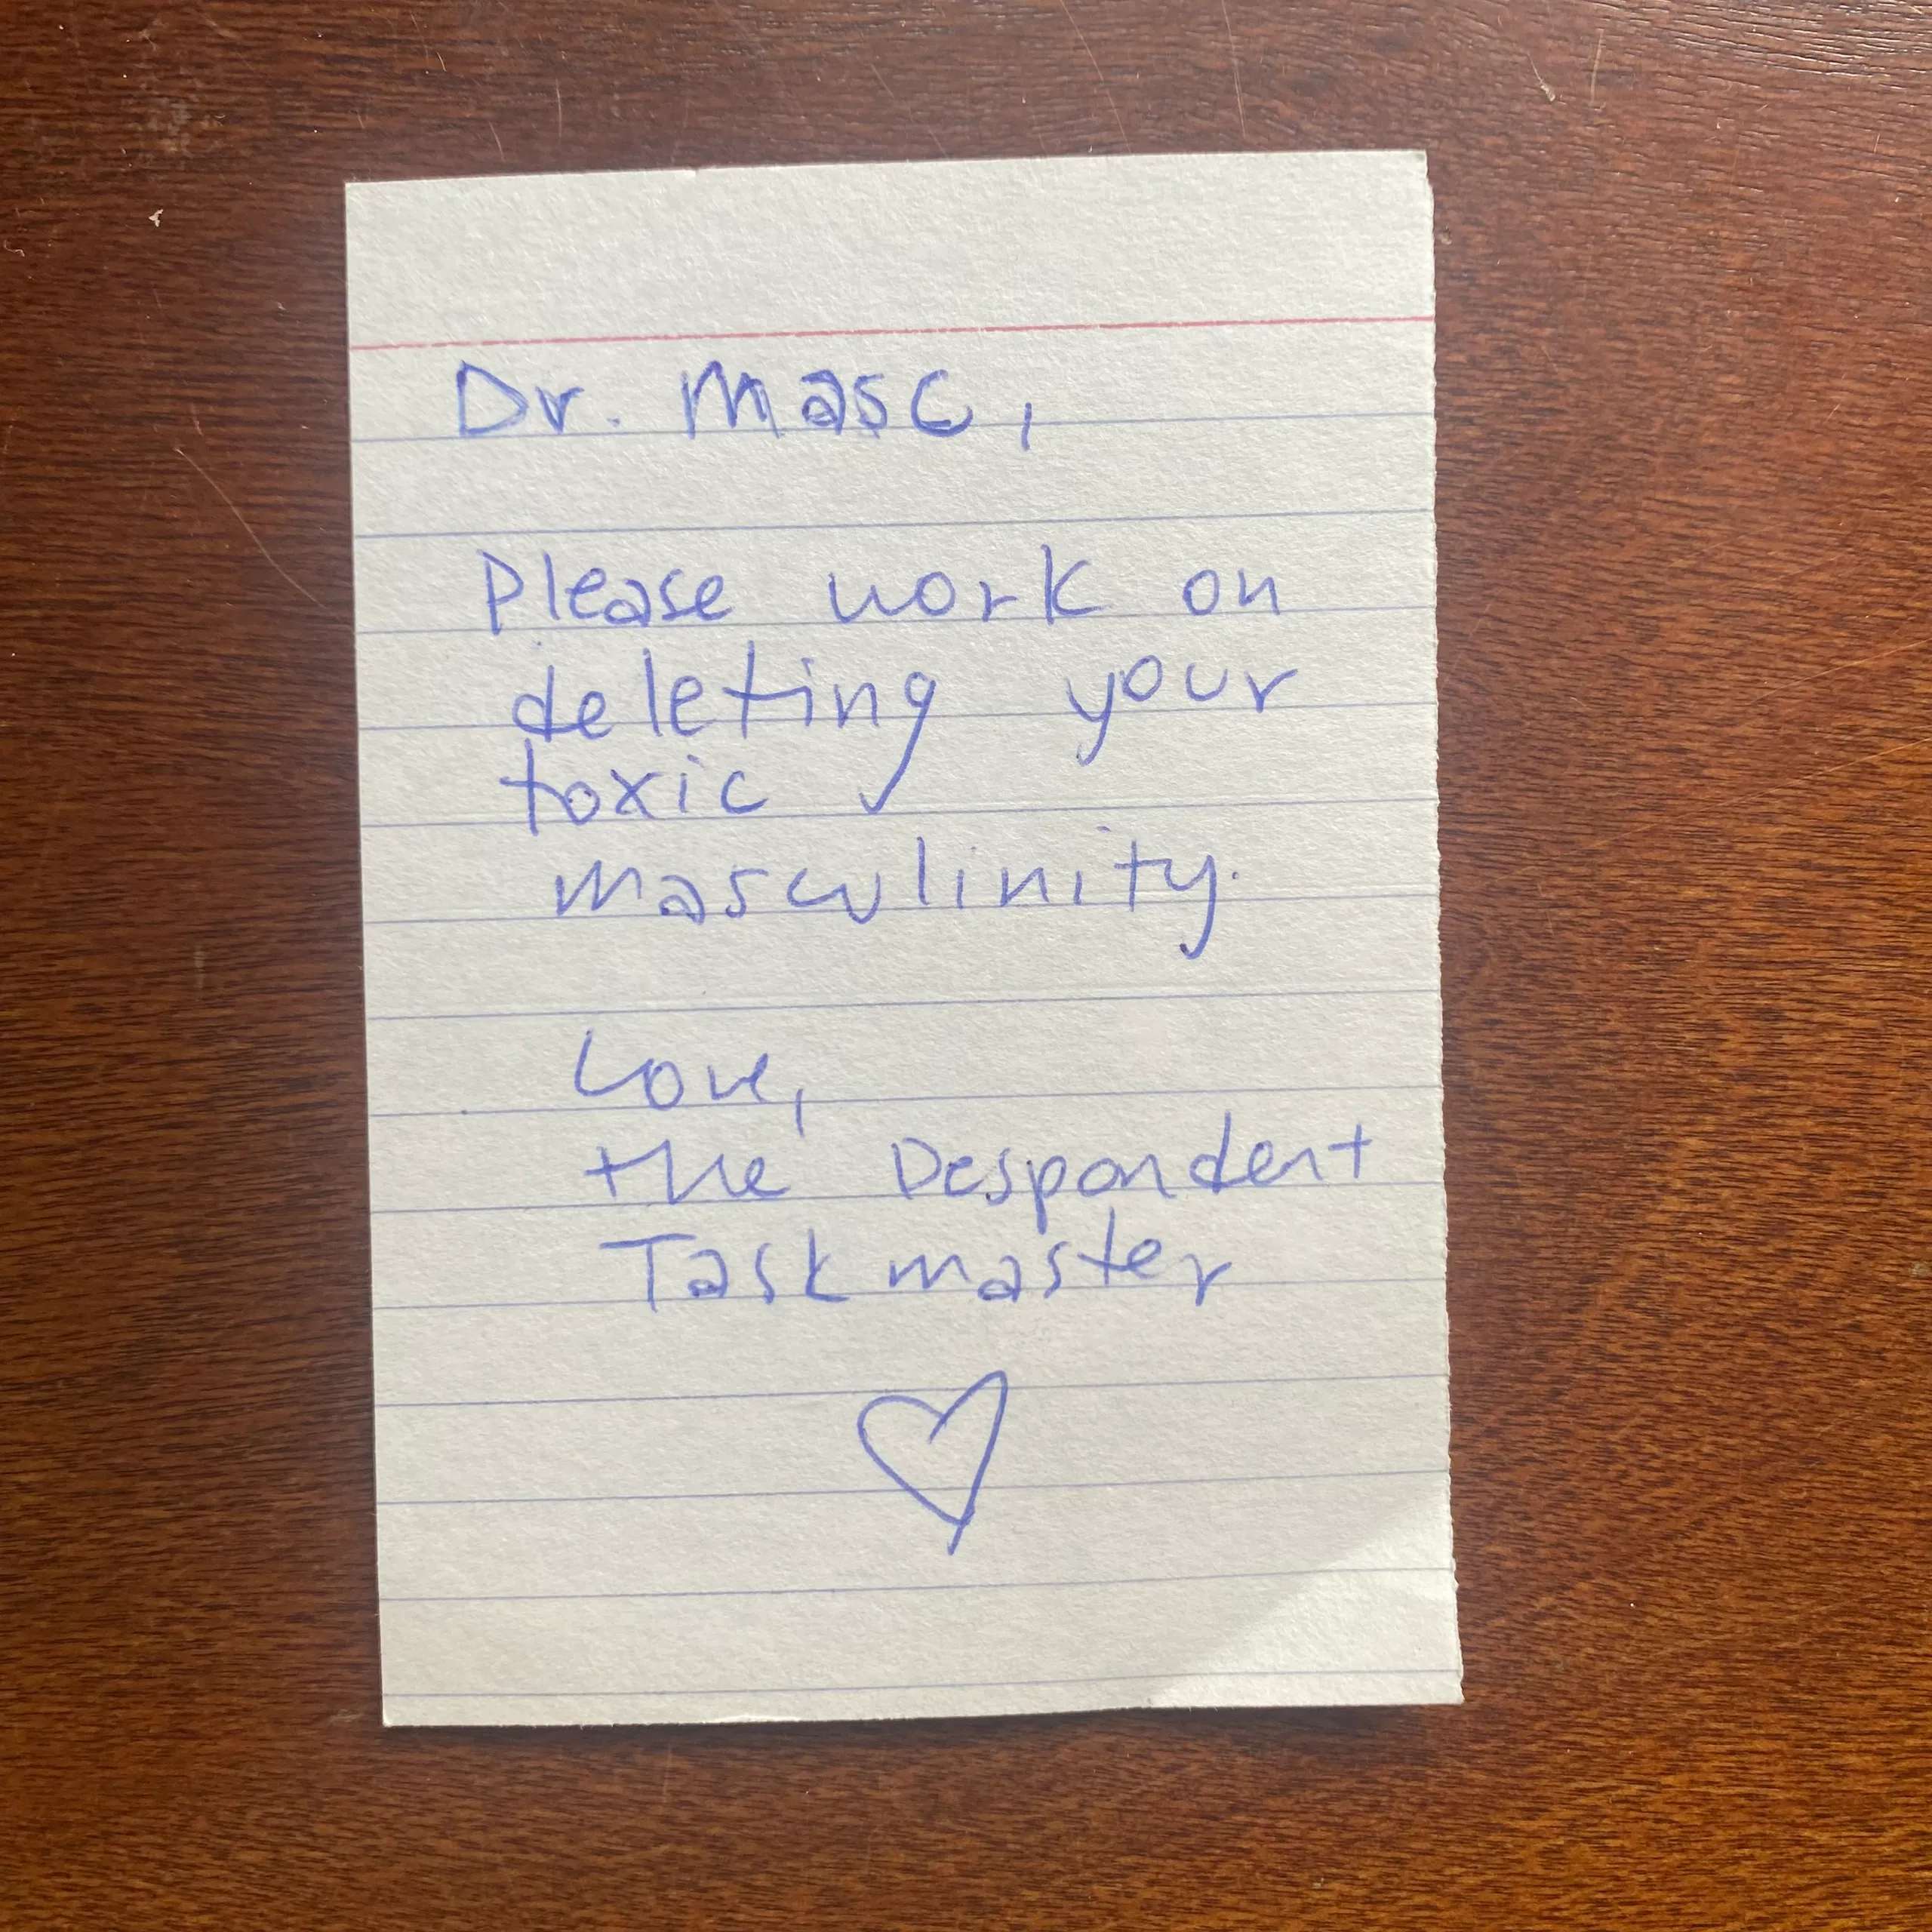 Dr. Masc,
Please work on
deleting your
toxic
masculinity.
Love,
the Despondent
Taskmaster